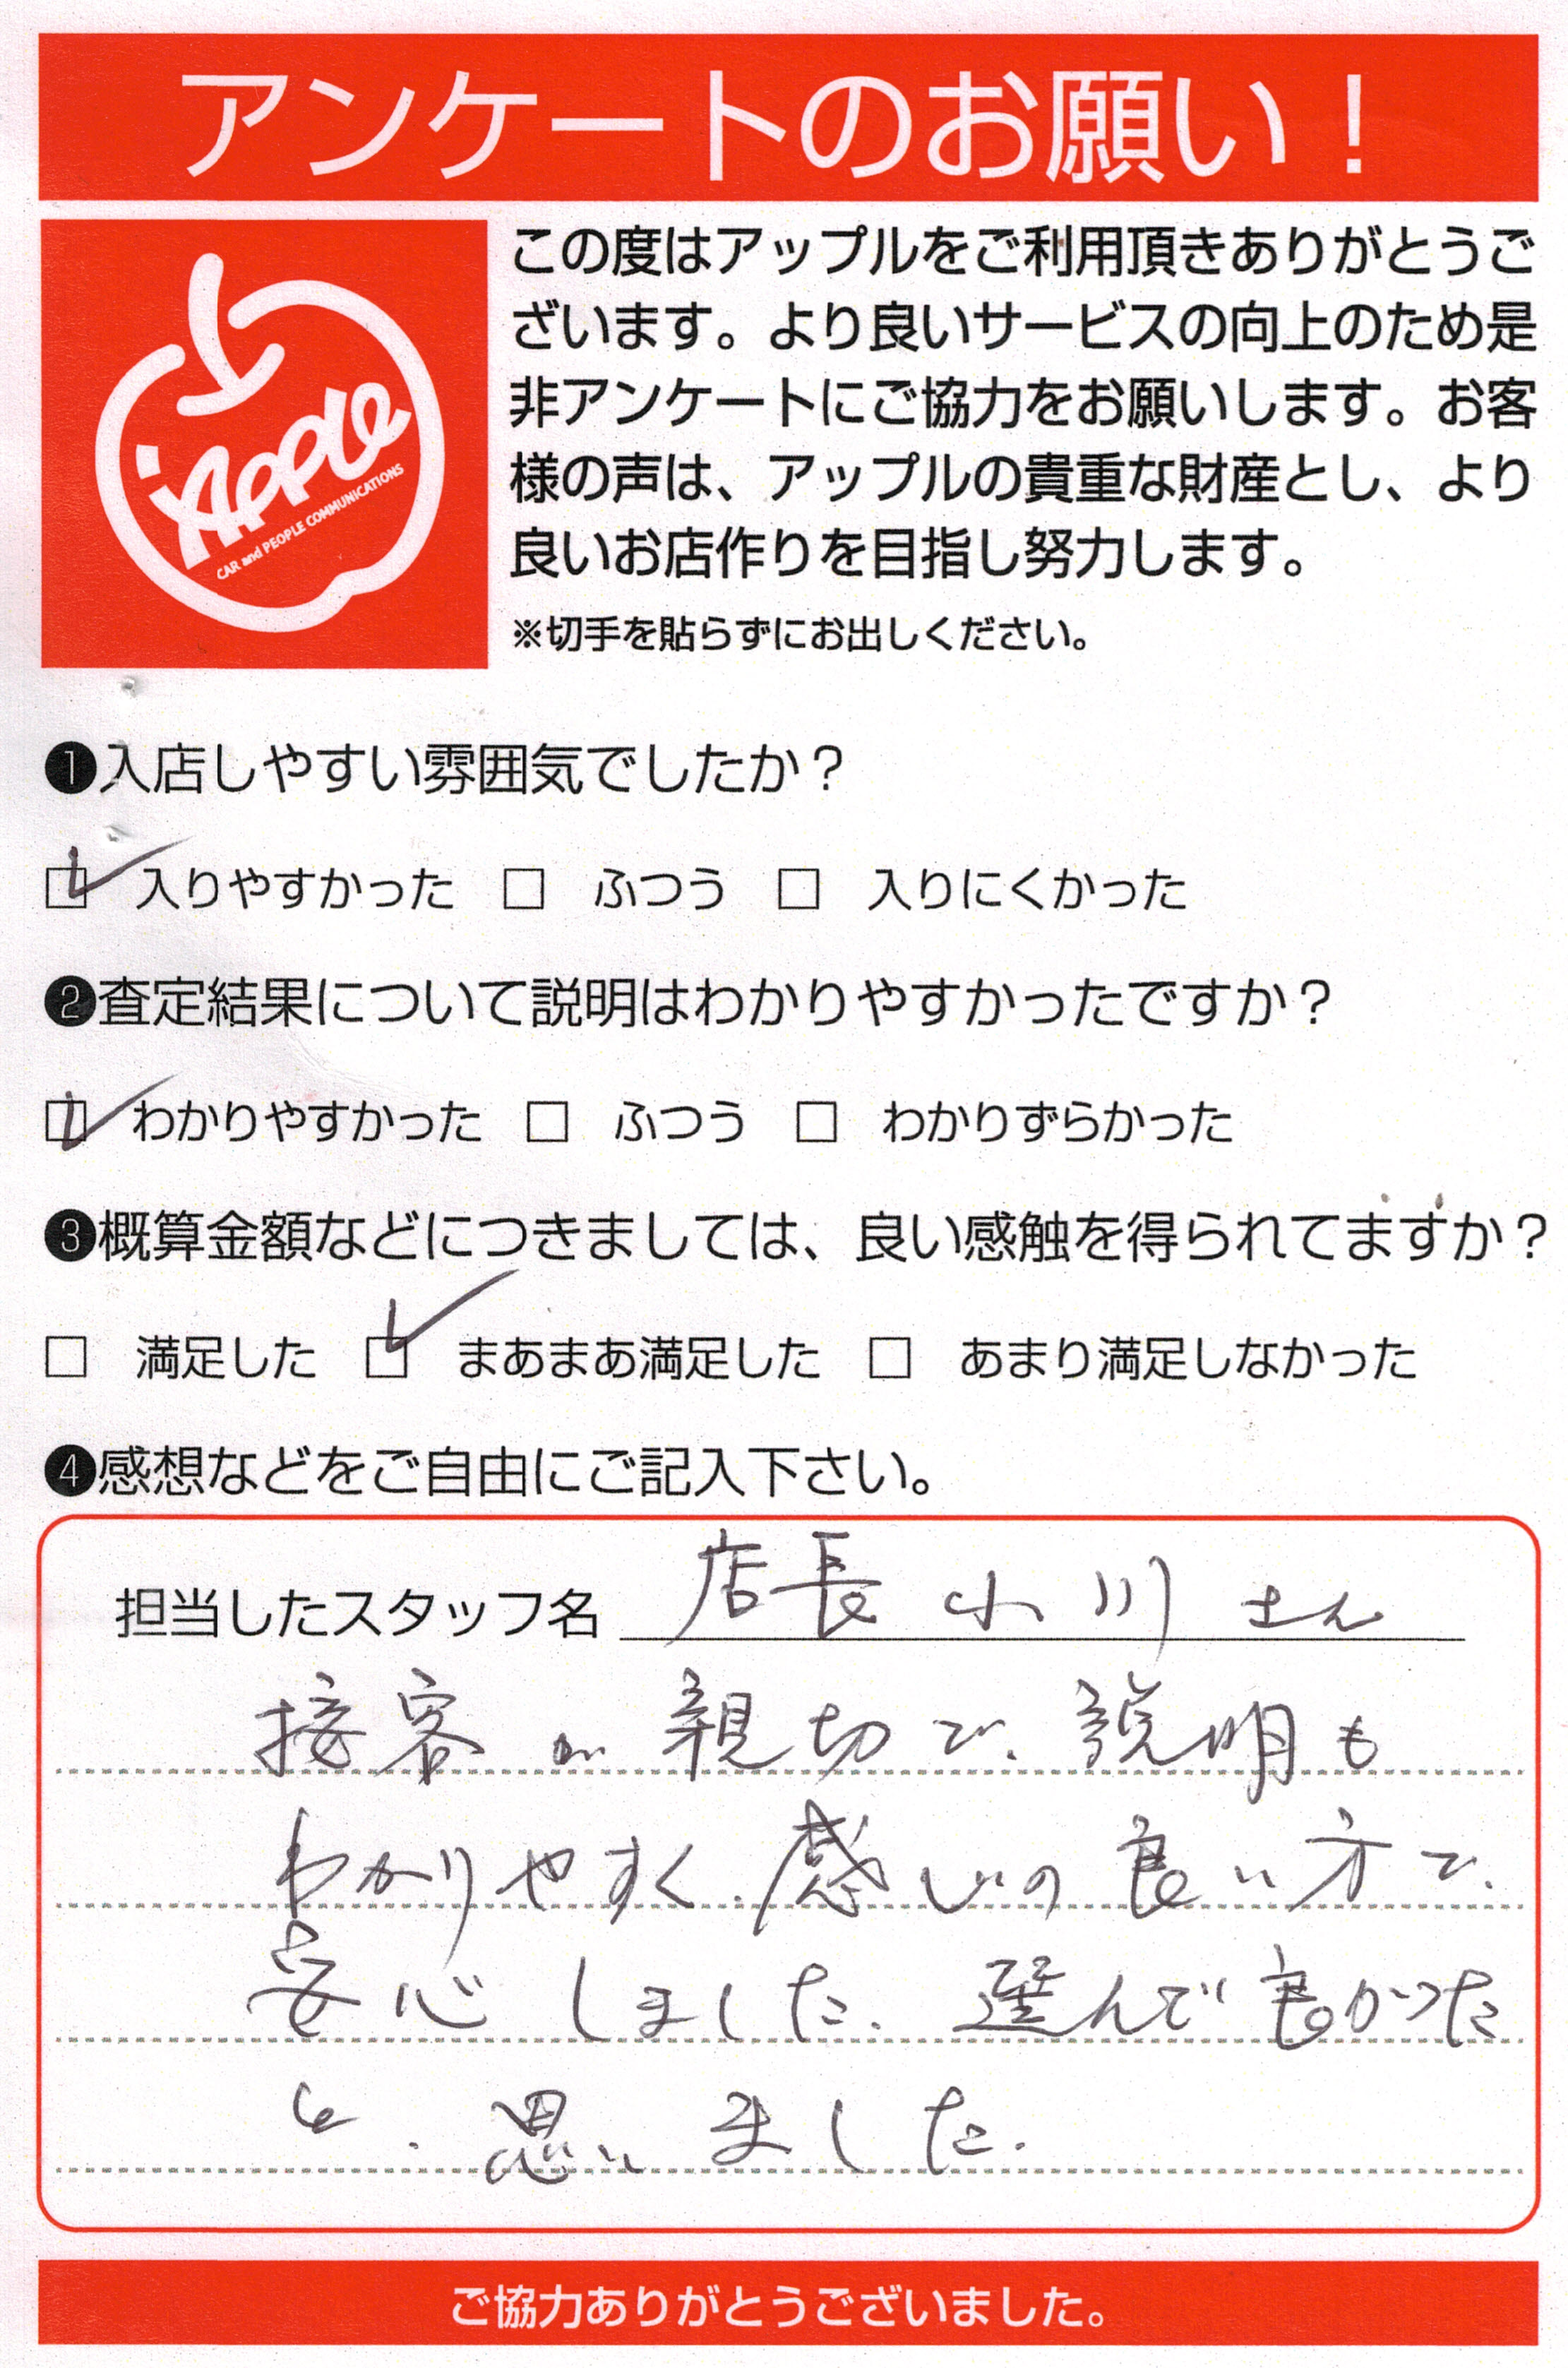 アンケートのお願い！
Apple
CAR and PEOPLE COMMUNICATIONS
この度はアップルをご利用頂きありがとうご
ざいます。より良いサービスの向上のため是
非アンケートにご協力をお願いします。お客
様の声は、アップルの貴重な財産とし、より
良いお店作りを目指し努力します。
※切手を貼らずにお出しください。
❶入店しやすい雰囲気でしたか？
☑ 入りやすかった □ ふつう □ 入りにくかった
❷査定結果について説明はわかりやすかったですか？
☑ わかりやすかった □ ふつう □ わかりずらかった
❸概算金額などにつきましては、良い感触を得られてますか？
□ 満足した ☑ まあまあ満足した □ あまり満足しなかった
❹感想などをご自由にご記入下さい。
担当したスタッフ名 店長 小川 さん
接客が親切で、説明も
わかりやすく、感じの良い方で、
安心しました。選んで良かった
と、思いました。
ご協力ありがとうございました。